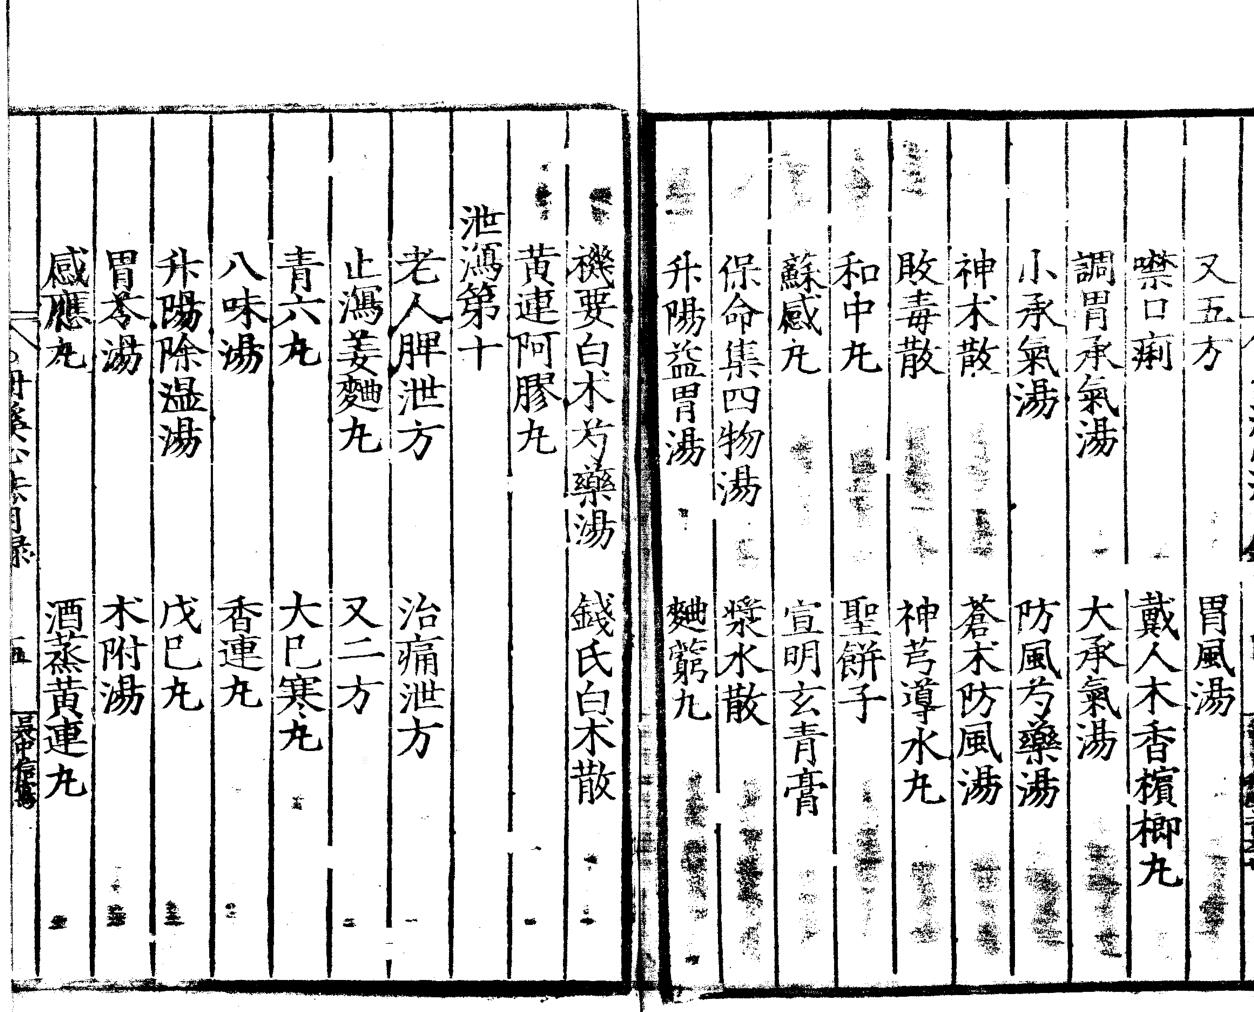 又五方　胃風湯
噤口痢　戴人木香檳榔丸
調胃承氣湯　大承氣湯
小承氣湯　防風芍藥湯
神朮散　蒼朮防風湯
敗毒散　神芎導水丸
和中丸　聖餅子
蘇感丸　宣明玄青膏
保命集四物湯　漿水散
升陽益胃湯　麯藭丸
機要白朮芍藥湯　錢氏白朮散
黃連阿膠丸
泄瀉第十
老人脾泄方　治痛泄方
止瀉姜麯丸　又二方
青六丸　大巳寒丸
八味湯　香連丸
升陽除濕湯　戊巳丸
胃苓湯　朮附湯
感應丸　酒蒸黃連丸
丹溪心法目錄　五